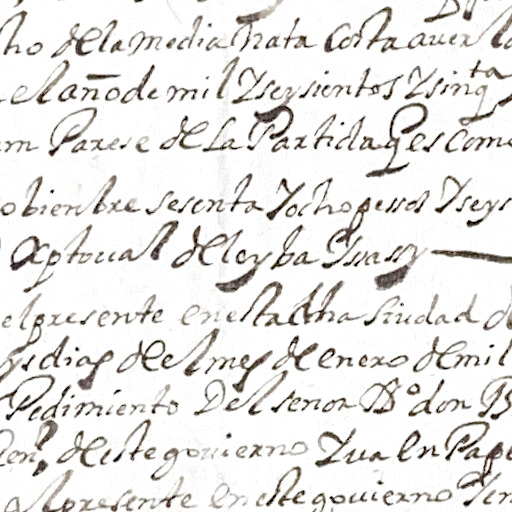 ho de la media nata Consta aver la
el año de mil y seysientos y sinqta
m Parese de la Partida q es como
obienbre sesenta y ocho pessos y seys
Xptoual de leyba ysassy
el presente en esta dha Siudad d
ys dias de el mes de enero de mil
Pedimiento Del senor Dº don B
Gen.l de este gouierno y ua en Pape
el presente en este gouierno